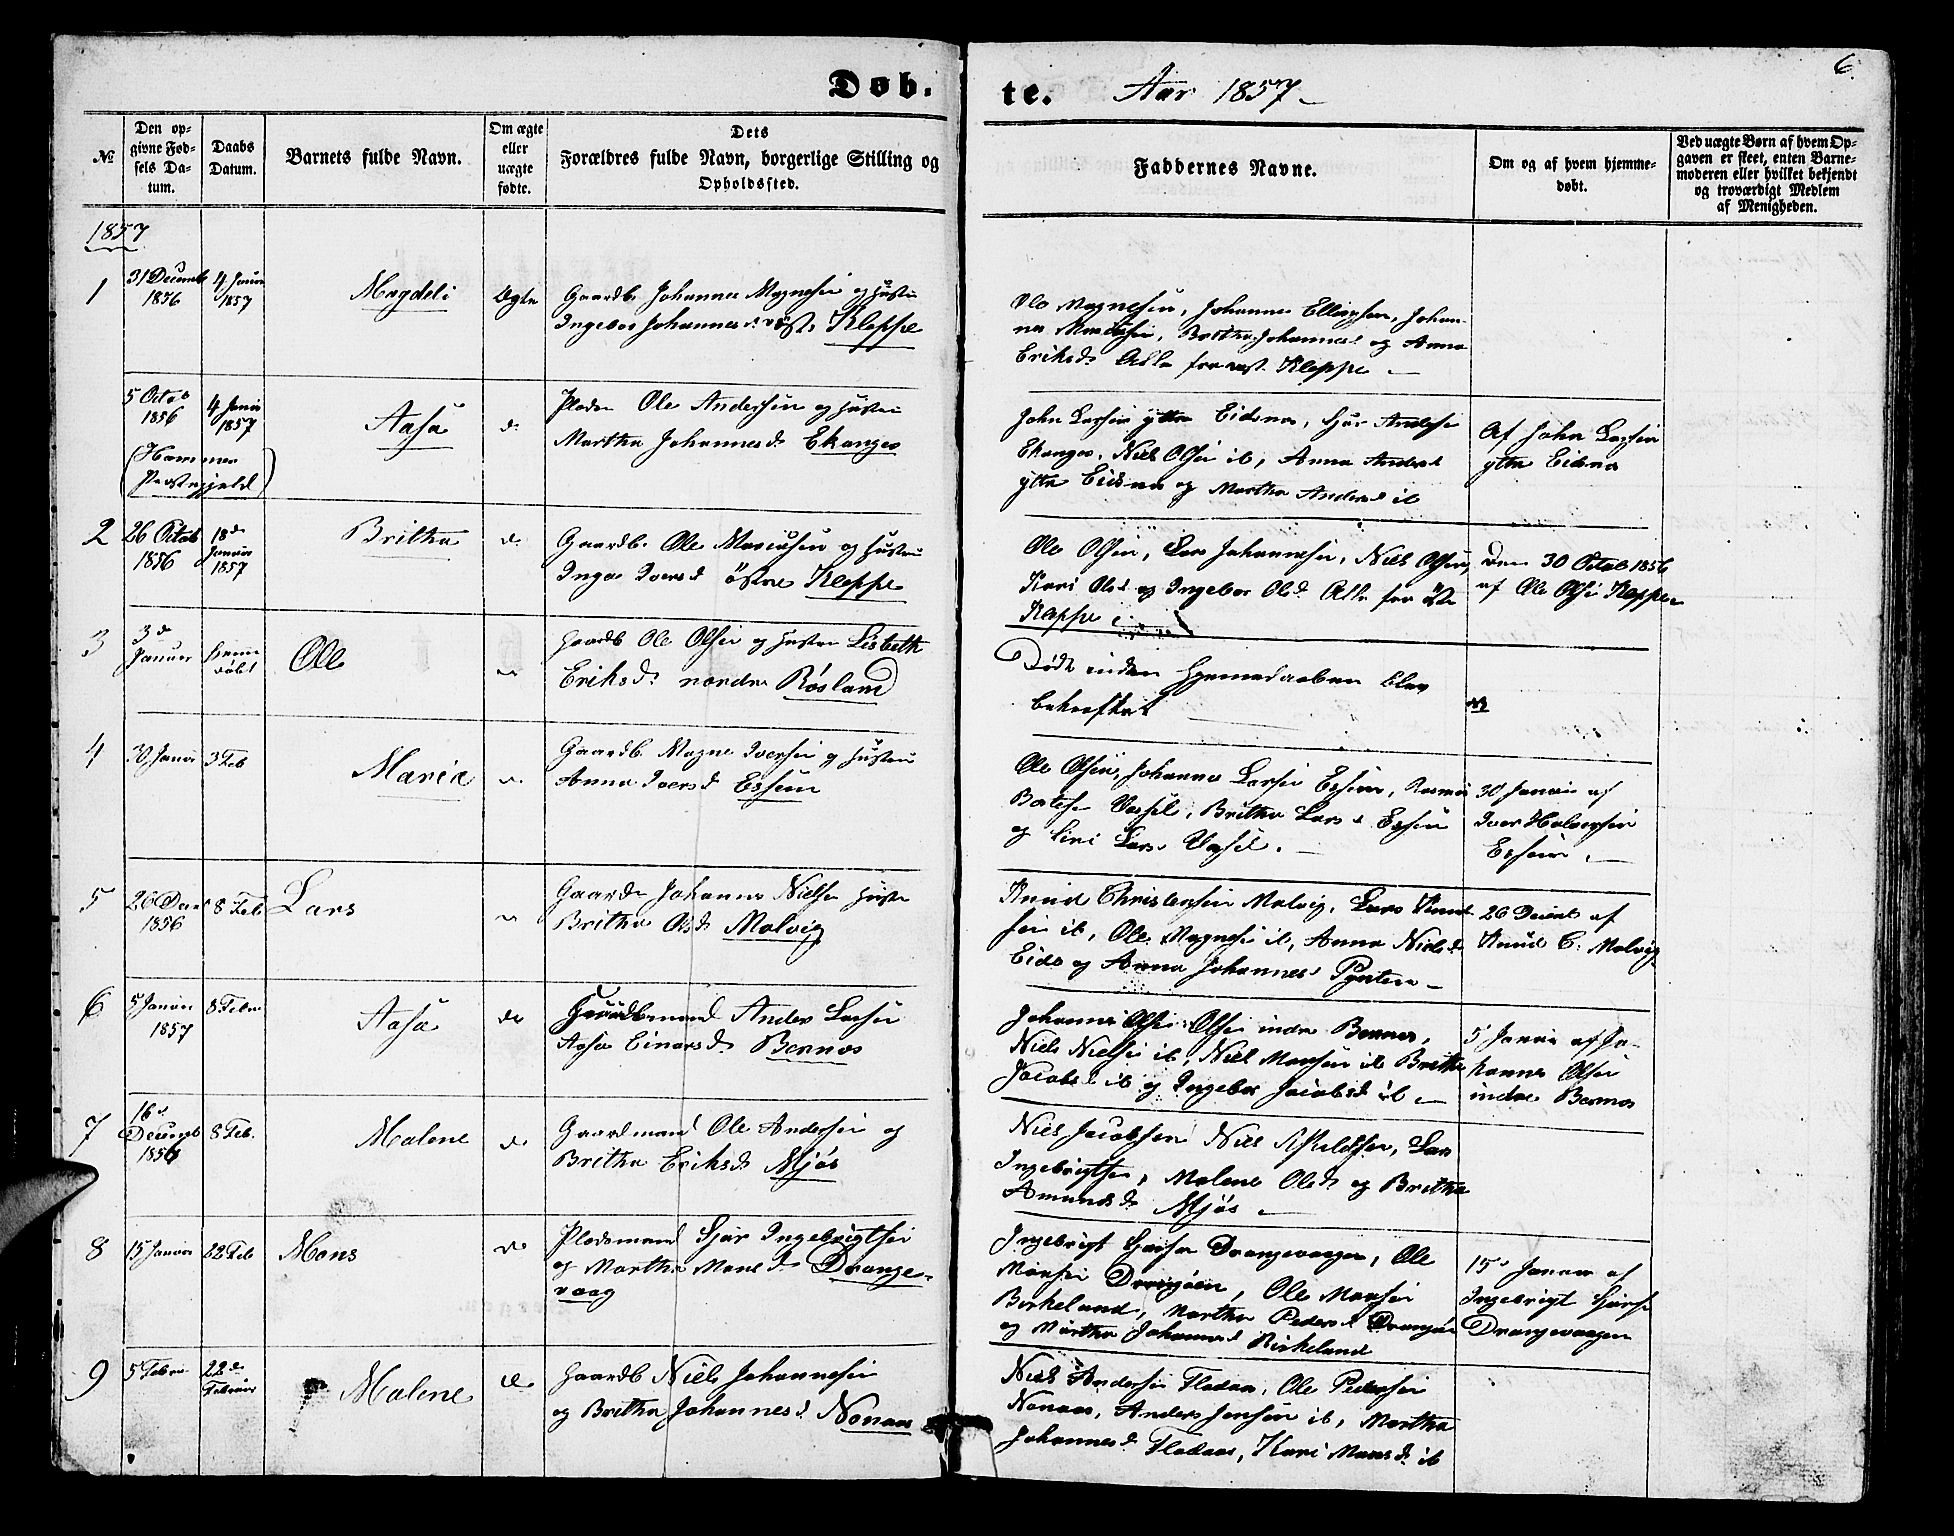 Døb.
te. Aar 1857
6.
№
Den op-
givne Fød-
sels Da-
tum.
Daabs
Datum.
Barnets fulde Navn.
Om ægte
eller
uægte
fødte.
Dets
Forældres fulde Navn, borgerlige Stilling og
Opholdssted.
Faddernes Navne.
Om og af hvem hjemme-
døbt.
Ved uægte Børn af hvem Op-
gaven er skeet, enten Barne-
moderen eller hvilket bekjendt
og troværdigt Medlem
af Menigheden.
1857
1
31 Decemb
1856
4 Januar
1857
Magdeli
Ægte
Gaardb. Johannes Magnesen og Hustru
Ingebor Johannesd. Kleppe
Ole Magnesen, Johannes Ellingsen, Johan-
nes Britha Johannesd og Anna
Eriksd. Alle fra Kleppe
5 Octo
1856
(Hammer
Præstegjeld)
4 Januar
1857
Aasa
do
Pladsm Ole Andersen og Hustru
Martha Johannesd. Ekanges
John Larsen ytre Eidsnes,
Ekanges, Niels Olsen ib, Anna Andersd
ytre Eidsnes og Martha Andersd ib
Af John Larsen
ytre Eidsnes
2
26 Octob
1856
18de
Januar
1857
Britha
do
Gaardb. Ole og Hustru
Inga Iversd østre Kleppe
Ole Olsen, Lars Johannesen, Niels Olsen,
Kari Olsd og Ingebor Olsd Alle fra
Kleppe
Den 30 Octob 1856
af Ole Olsen Kleppe
3
3de
Januar
hjemme
døbt
Ole
Gaardb Ole Olsen og Hustru Lisbeth
Eriksd. nordre Røsland
Døde inden Hjemmedaaben blev
bekræftet
4
30 Januar
3 Feb
Maria
Gaardb Magne Iversen og Hustru
Anna Iversd
Ole Olsen, Johannes Larsen
Britha Larsd
og Lars
30 Januar af
Iver Halvorsen
5
26 Decem
1856
8 Feb
Lars
Johannes Nielsen Hustru
Britha Olsd. Malvig
Knud Christensen Malvig, Lars Knud-
sen ib, Ole Magnesen ib, Anna Nielsd
Eide og Anna Johannesd
26 Decemb af
Knud C. Malvig
6
5 Januar
1857
8 Febr
Aasa
do
Gaardbmand Anders Larsen
Aasa Einarsd. Bernæs
Johannes Olsen indre Bernæs,
Niels Nielsen ib, Niels Monsen ib Britha
Jacobsd ib og Ingebor Jacobsd ib
5 Januar af Jo-
hannes Olsen
indre Bernæs
7
16de
Decemb
1856
8 Feb.
Malene
do
Gaardmand Ole Andersen og
Britha Eriksd. Mjøs
Niels Jacobsen Niels Lars
Ingebrigtsen, Malene Olsd. og Britha
Amundsd. Mjøs
8
15 Januar
22 Feb
Mons
do
Pladsmand Ingebrigtsen
og Martha Monsd. Drange-
vaag
Ingebrigt Drangevaagen, Ole
Monsen Ole Monsen
Birkeland, Martha Pedersd
og Martha Johannesd Birkeland
15de Januar af
Ingebrigt
Drangevaagen
9
5 Febru
22de
Februar
Malene
do
Gaardb Niels Johannesen
og Britha Johannesd. Nonaas
Niels Andersen Fladaas, Ole Pedersen
Nonaas, Anders Jensen ib, Martha
Johannesd. Fladaas, Kari Monsd. ib